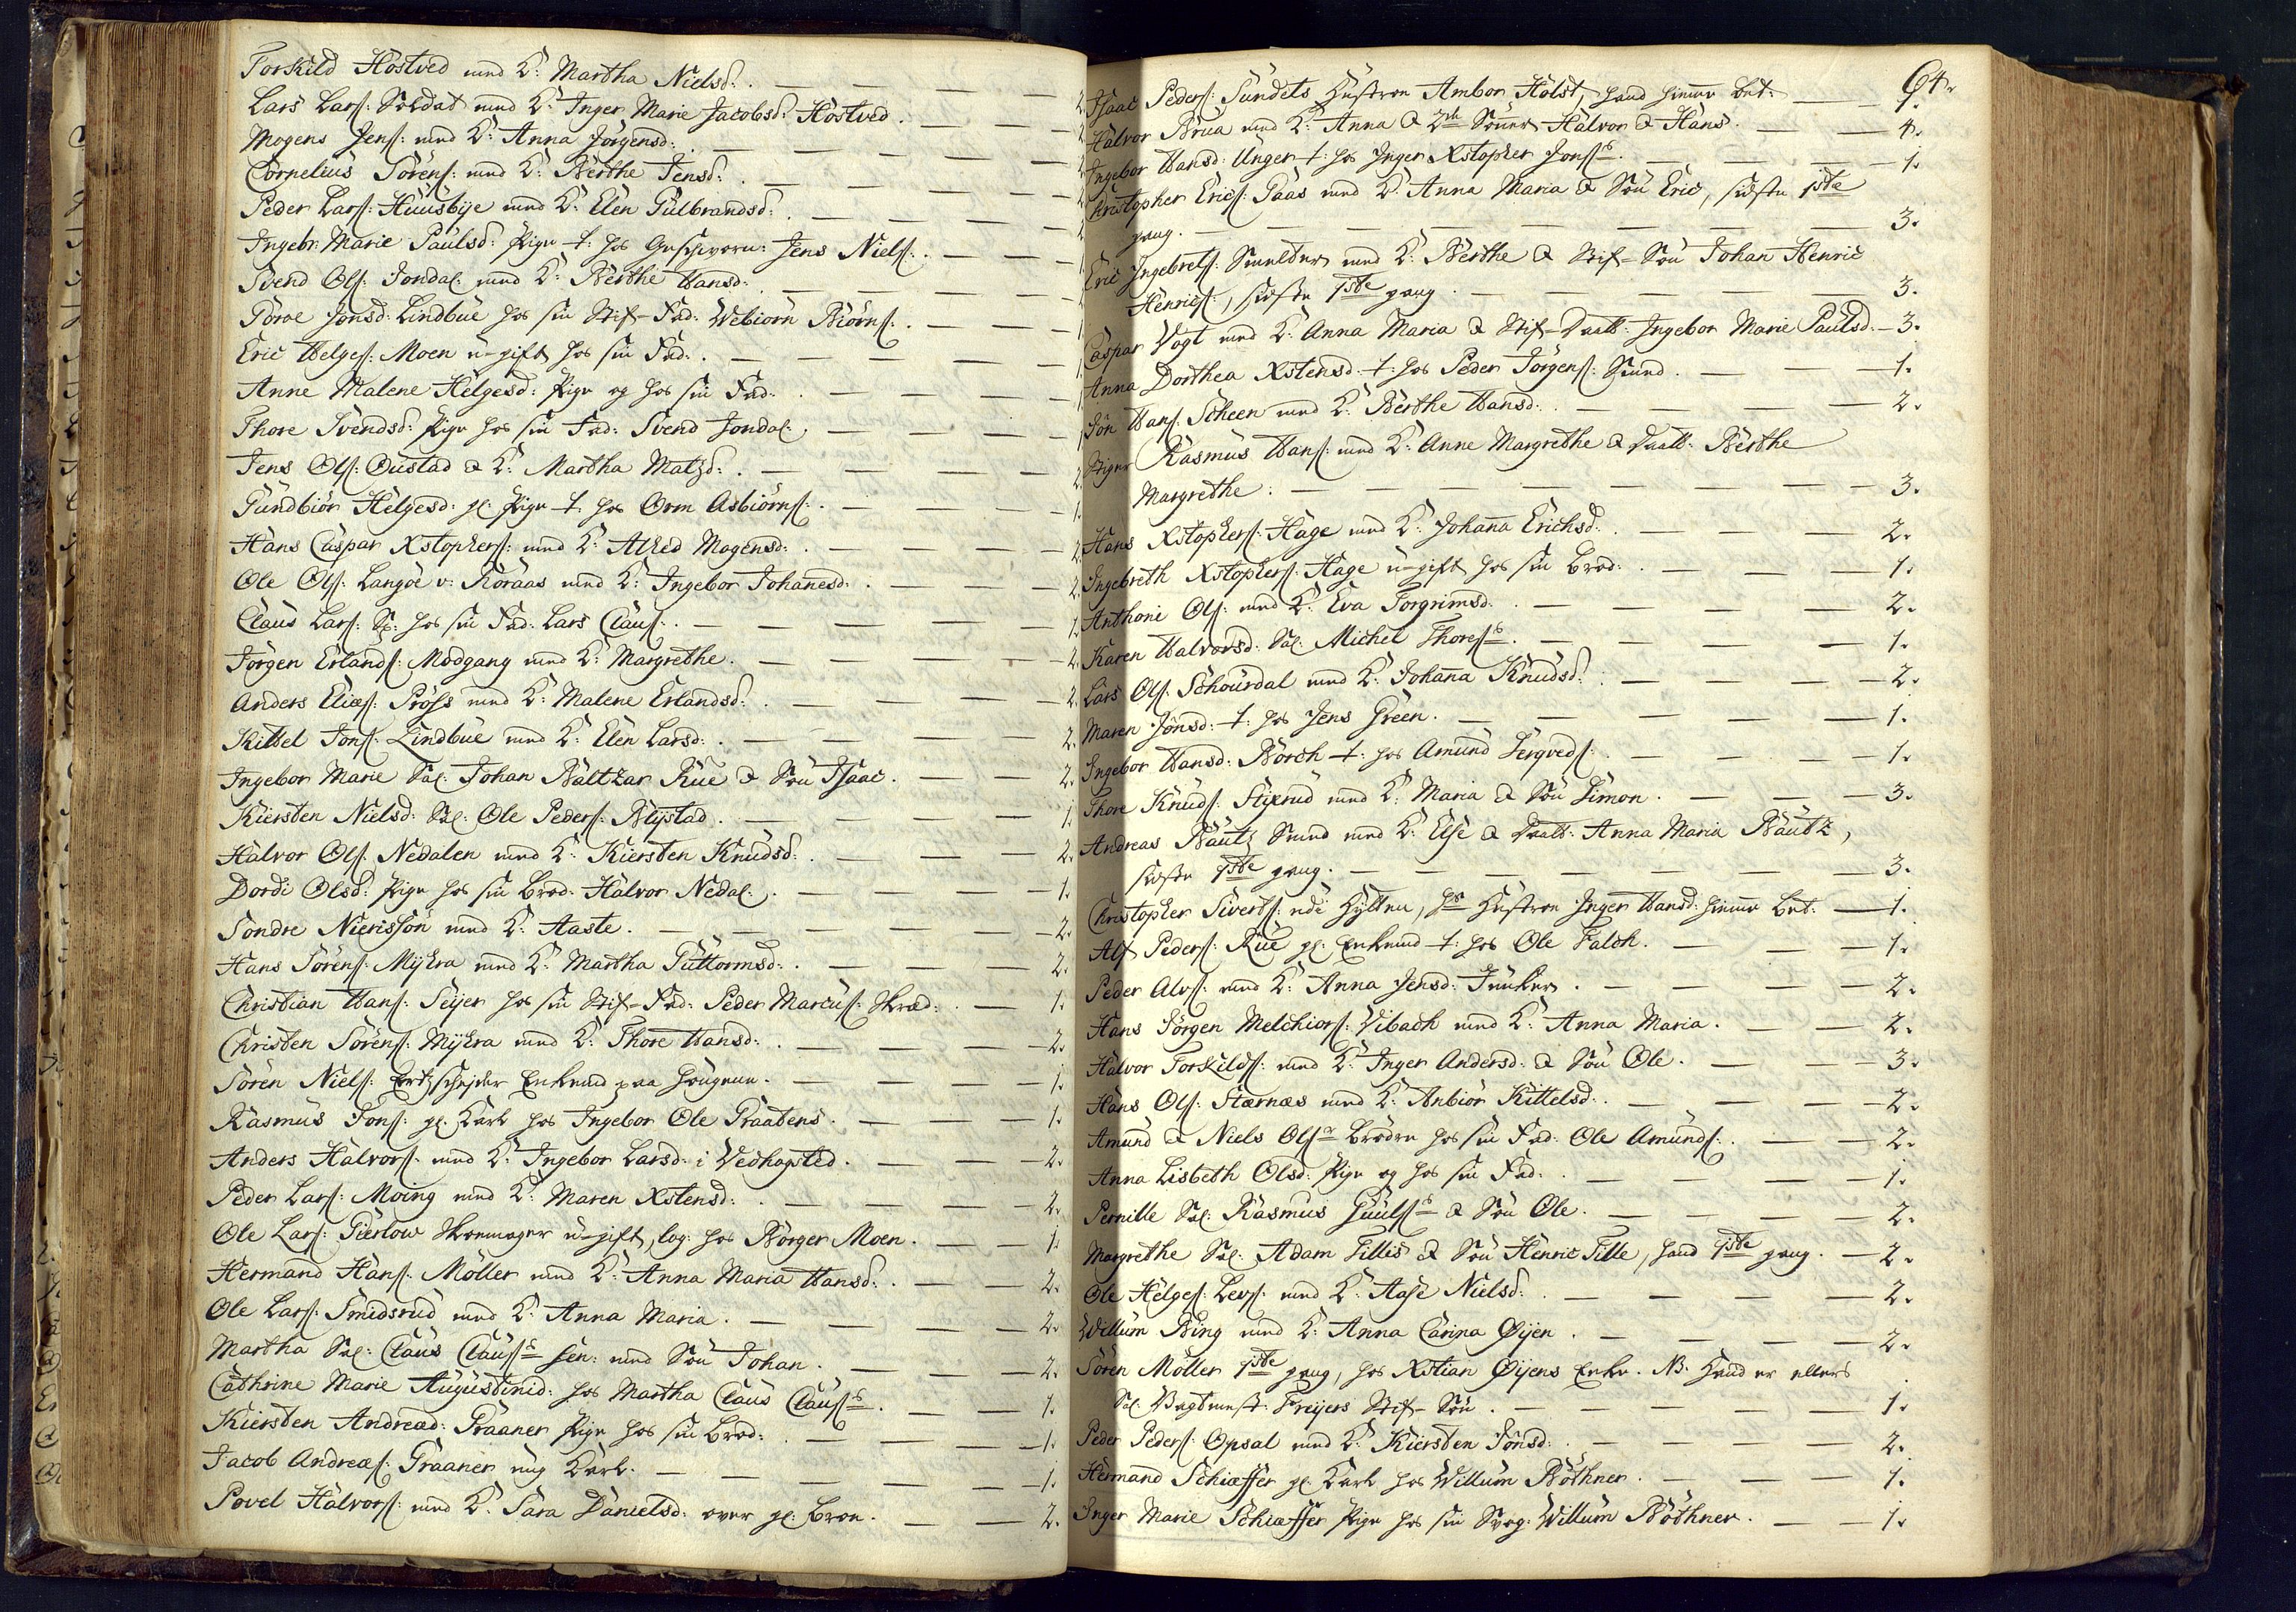 Torkild Höstved med K: Martha Nielsd: . — 2.
Lars Lars: Soldat med K: Inger Marie Jacobsd: Höstved . — 2.
Mogens Jens: med K: Anna Jörgensd: . — 2.
Cornelius Sörens: med K: Berthe Jensd: . — 2.
Peder Lars: Huusbye med K: Elen Gulbrandsd: . — 2.
Ingebr: Marie Paulsd: Pige t: hos Geschworn: Jens Niels: . — 1.
Svend Ols: Jondal: med K: Berthe Hansd: . — 2.
Töroe Jonsd: Lindbue hos sin Stif-Fad: Webiörn Biörns: . — 1.
Eric Helges: Moen u-gift hos sin Fad: . — 1.
Anne Malene Helgesd: Pige og hos sin Fad: . — 1.
Thore Svendsd: Pige hos sin Fad: Svend Jondal: . — 1.
Jens Ols: Oustad & K: Martha Matzd: . — 2.
Gundbiör Helgesd: gl: Pige t: hos Orm Asbiörns: . — 1.
Hans Caspar Xstophers: med K: Alhed Mogensd: . — 2.
Ole Ols: Langöe v: Röraas med K: Ingebor Johanesd: . — 2.
Claus Lars: hos sin Fad: Lars Claus: . — 1.
Jörgen Erlands: Modgang med K: Margrethe . — 2.
Anders Elias: Pröss med K: Malene Erlandsd: . — 2.
Kittel Jons: Lindbue med K: Elen Larsd: . — 2.
Ingebor Marie Sal: Johan Baltzar Rue & Sön Isaac . — 2.
Kiersten Nielsd: Sal: Ole Peders: Blystad . — 1.
Halvor Ols: Nedalen med K: Kiersten Knudsd: . — 2.
Dordi Olsd: Pige hos sin Brod: Halvor Nedal: . — 1.
Sondre Nierissön med K: Aaste . — 2.
Hans Sörens: Myhra med K: Martha Guttormsd: . — 2.
Christian Hans: Seyer hos sin Stif-Fad: Peder Marcus: Skræd: . — 1.
Christen Sörens: Myhra med K: Thore Hansd: . — 2.
Sören Niels: Ertzschejder Enkemd paa Hougene . — 1.
Rasmus Jons: gl: Karl hos Ingebor Ole Praatens . — 1.
Anders Halvors: med K: Ingebor Larsd: i Vedhagsted . — 2.
Peder Lars: Moing med K: Maren Xstensd: . — 2.
Ole Lars: Gierlow Skomager u-gift, log: hos Börger Moen . — 1.
Hermand Hans: Möller med K: Anna Maria Hansd: . — 2.
Ole Lars: Smidsrud med K: Anna Maria . — 2.
Martha Sal: Claus Clauss sen: med Sön Johan . — 2.
Cathrine Marie Augustinid: hos Martha Claus Clauss . — 1.
Kiersten Andread: Graaner Pige hos sin Brod: . — 1.
Jacob Andreæs: Graaner ung Karl . — 1.
Povel Halvors: med K: Sara Danielsd: over gl: Broe . — 2.
64.
Isaac Peders: Sundets Hustroe Ambor Holst, hand hieme bet: — 1.
Halvor Brua med K: Anna & 2de Sönner Halvor & Hans . — 4.
Ingebor Hansd: Unger t: hos Inger Xstopher Jonss . — 1.
Christopher Erics: Gaas med K: Anna Maria & Sön Eric, sidste 1ste
gang . — 3.
Eric Ingebrets: Smelter med K: Berthe & Stif-Sön Johan Henric
Henrics:, sidste 1ste gang . — 3.
Caspar Vogt med K: Anna Maria & Stif-Datt: Ingebor Marie Paulsd: — 3.
Anna Dorthea Xstensd: t: hos Peder Jörgens: Smed . — 1.
Jon Hans: Scheen med K: Berthe Hansd: . — 2.
Stiger Rasmus Hans: med K: Anne Margrethe & Datt: Berthe
Margrethe : — 3.
Hans Xstophers: Hage med K: Johana Erichsd: . — 2.
Ingebreth Xstophers: Hage u-gift hos sin Brod: . — 1.
Anthoni Ols: med K: Eva Torgrimsd: . — 2.
Karen Halvorsd: Sal: Michel Thoress . — 1.
Lars Ols: Schourdal med K: Johana Knudsd: . — 2.
Maren Jonsd: t: hos Jens Green . — 1.
Ingebor Hansd: Borch t: hos Amund Tergveds: — 1.
Thore Knuds: Stixrud med K: Maria & Sön Simon . — 3.
Andreas Bautz Smed med K: Else & Datt: Anna Maria Bautz,
sidste 1ste gang . — 3.
Christopher Siverts: Hytten, Hustroe Inger Hansd: hieme bet: — 1.
Alf Peders: Rue gl: Enkemd t: hos Ole Falch . — 1.
Peder Alvs: med K: Anna Jensd: Junker . — 2.
Hans Jörgen Melchiors: Vibach med K: Anna Maria . — 2.
Halvor Torkilds: med K: Inger Andersd: & Sön Ole . — 3.
Hans Ols: Stærnæs med K: Anbiör Kittelsd: . — 2.
Amund & Niels Olsr Brödre hos sin Fad: Ole Amunds: . — 2.
Anna Lisbeth Olsd: Pige og hos sin Fad: . — 1.
Pernille Sal: Rasmus Guulss & Sön Ole . — 2.
Margrethe Sal: Adam Tillis & Sön Henric Tille, hand 1ste gang . — 2.
Ole Helges: Levs: med K: Aase Nielsd: . — 2.
Willum Bing med K: Anna Carina Öyen . — 2.
Sören Möller 1ste gang, hos Xstian Öyens Enke . NB. Hand er ellers
Sal: Vagtmest: Freyers Stif-Sön . — 1.
Peder Peders: Opsal med K: Kiersten Jonsd: . — 2.
Hermand Schiæffer gl: Karl hos Willum Böthner . — 1.
Inger Marie Schiæffer Pige hos sin Svog: Willum Böthner . — 1.